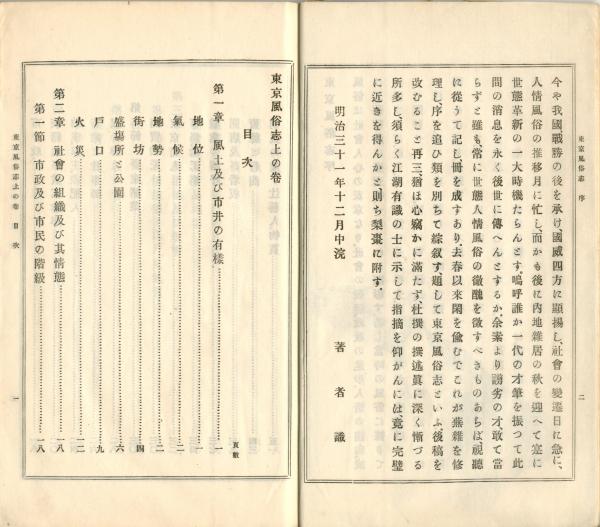 東京風俗志 序
二
今や我國戰勝の後を承け、國威四方に顯揚し、社會の變遷日に急に、
人情風俗の推移月に忙し、而かも後に内地雜居の秋を迎へて寔に
世態革新の一大時機たらんとす、嗚呼誰か一代の才筆を振つて此
間の消息を永く後世に傳へんとするか、余素より謭劣の才、敢て當
らずと雖も、常に世態人情風俗の徵すべきものあらば、視聽
に從うて記し冊を成すあり、去春以來閑を偸むでこれが蕪雜を修
理し、序を追ひ類を別ちて綜叙す、題して東京風俗志といふ、後稿を
改むること再三猶ほ心竊かに滿たず、杜撰の撰述眞に深く慚づる
所多し、須らく江湖有識の士に示して指摘を仰がんには、竟に完璧
に近きを得んかと則ち梨棗に附す。
明治三十一年十二月中浣
著者識
東京風俗志上の卷
目次
頁數
第一章 風土及び市井の有樣……一
地位……一
氣候……二
地勢……二
街坊……四
盛塲所と公園……六
戸口……九
火災……一二
第二章 社會の組織及び其情態……一八
第一節 市政及び市民の階級……一八
東京風俗志上の卷 目次
一